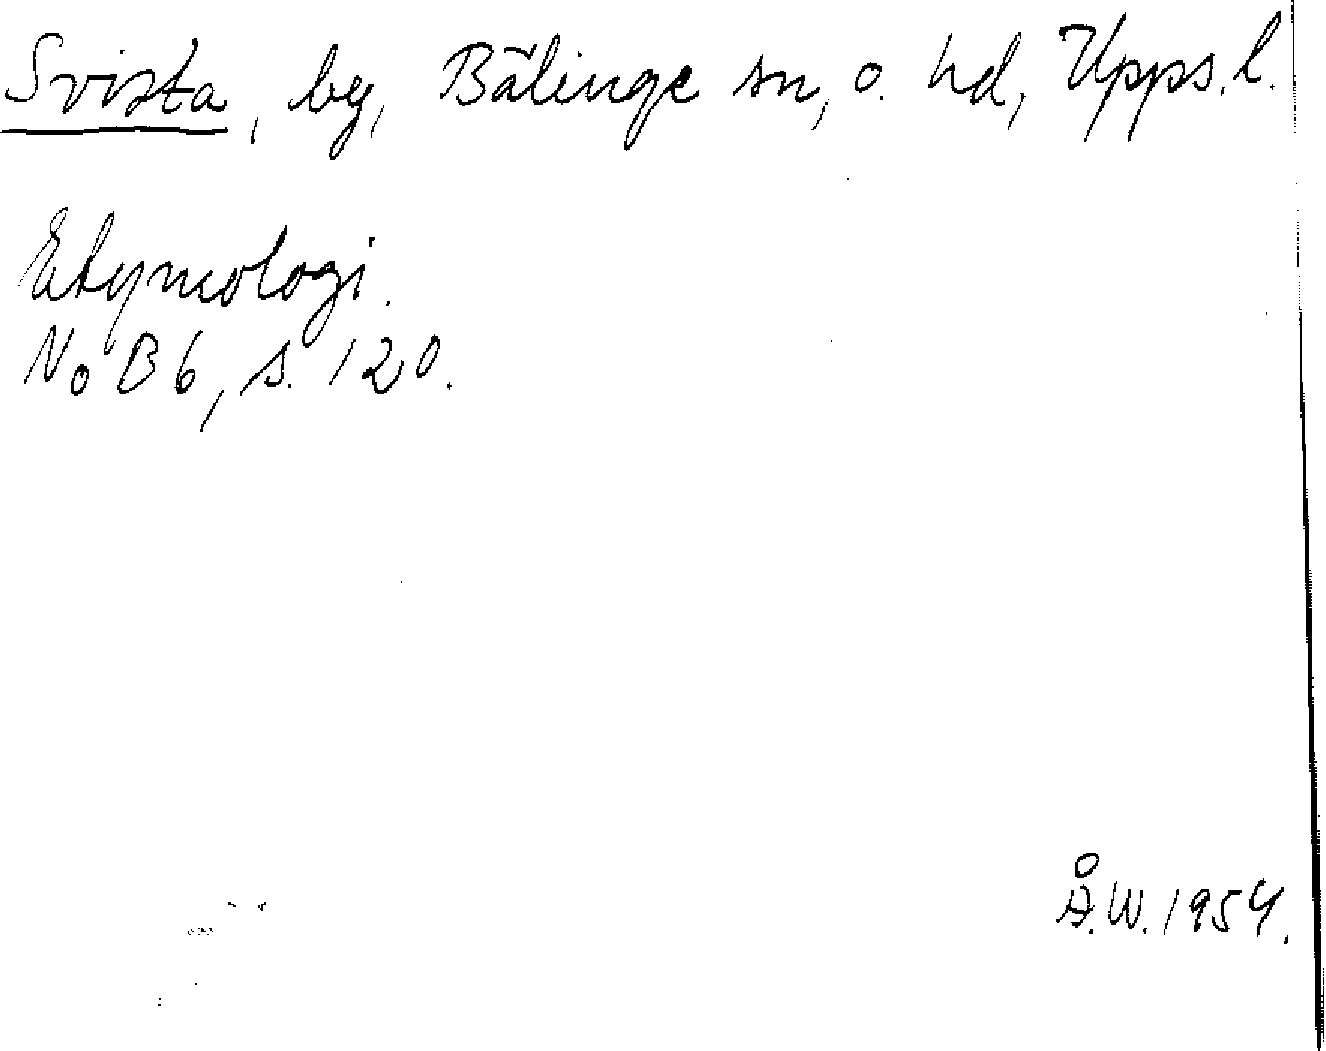 Svista, by, Bälinge sn, o. hd, Upps. l.
Etymologi.
NoB 6, s. 120.
Å.W. 1954.